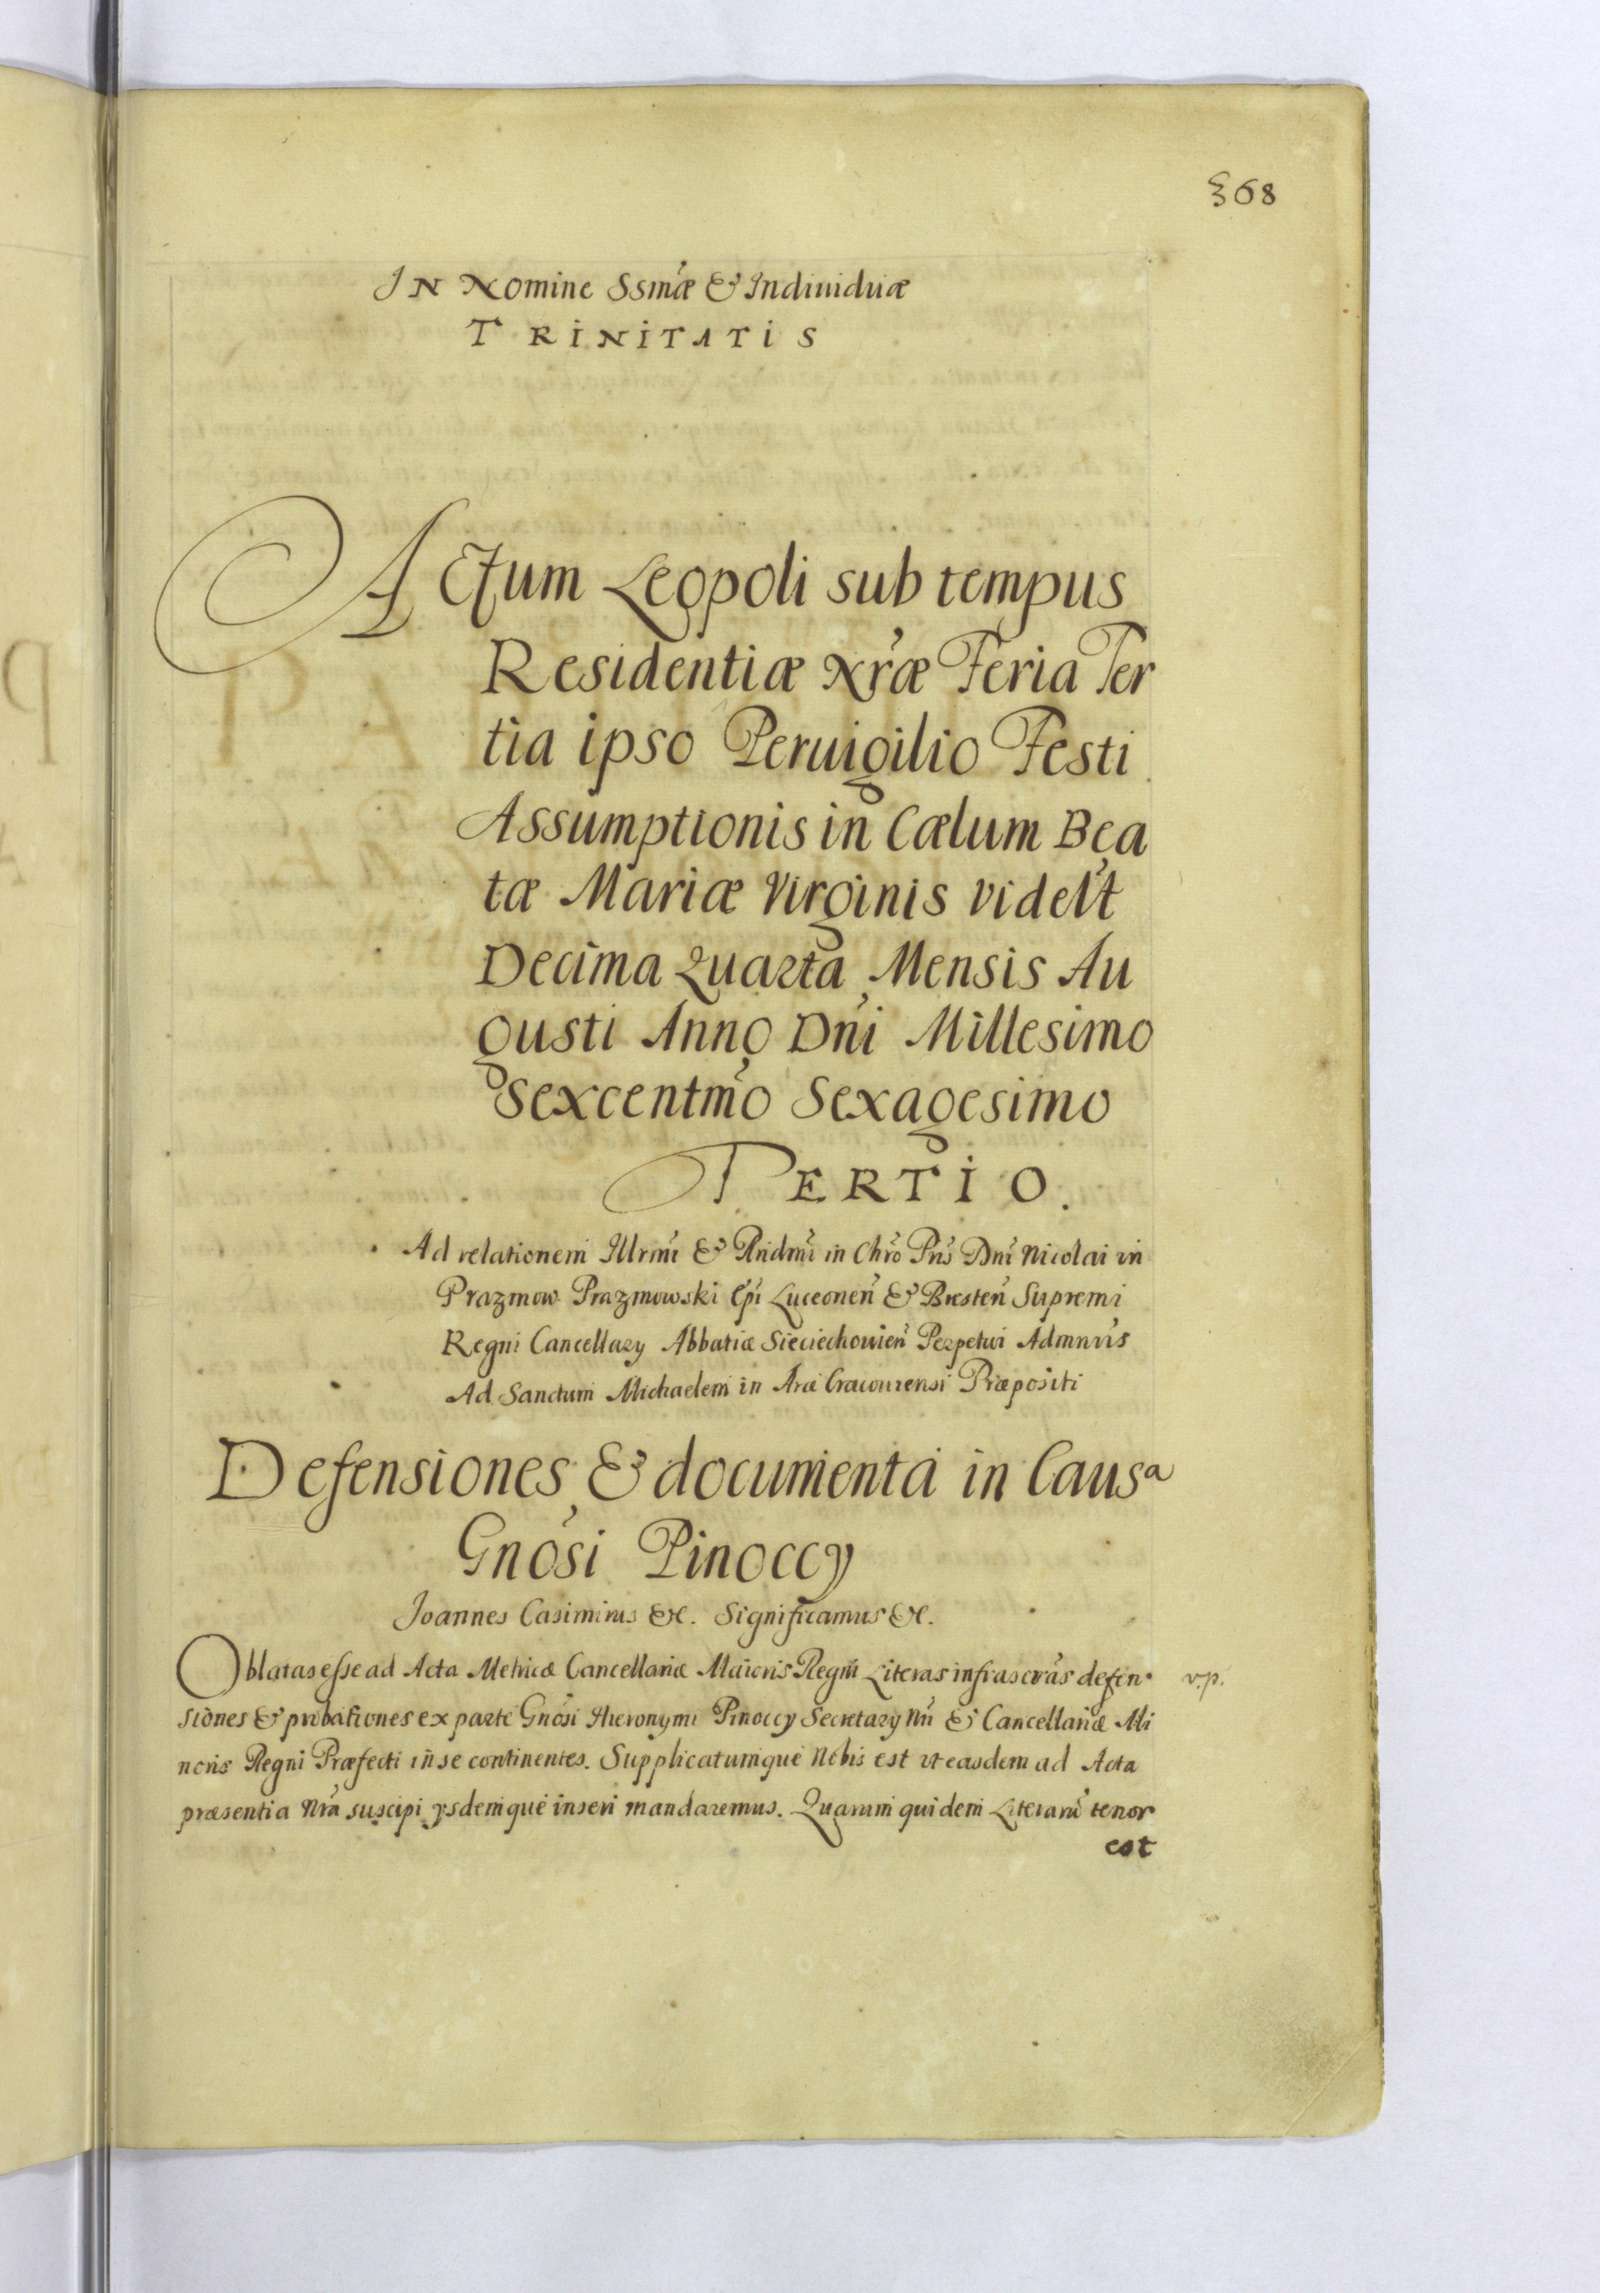 368
IN Nomine Ssmæ & Indiuiduæ
TRINITATIS
Actum Leopoli sub tempus
Residentiæ Nræ Feria Ter
tia ipso Peruigilio Festi
Assumptionis in Cælum Bea
tæ Mariæ Virginis videlt
Decima Quarta Mensis Au
gusti Anno Dni Millesimo
Sexcentmo Sexagesimo
TERTIO.
Ad relationem Illrmi & Rndmi in Chro Pris Dni Nicolai in
Prazmow Prazmowski Epi Luceorien & Bresten Supremi
Regni Cancellary Abbatiæ Sieciechouien Perpetui Admnris
Ad Sanctum Michaelem in Arce Cracouiensi Præpositi
Defensiones & documenta in Causa
Gnosi Pinoccy
Joannes Casimirus &c. Significamus &c.
Oblatas esse ad Acta Metricæ Cancellariæ Maioris Regni Literas infrascras defen
siones & probationes ex parte Gnosi Hieronymi Pinoccy Secretary Nri & Cancellariæ Mi
noris Regni Præfecti in se continentes. Supplicatumque Nobis est vt easdem ad Acta
præsentia Nra suscipi ysdemque inseri mandaremus. Quarum quidem Literaru tenor
v.p.
est